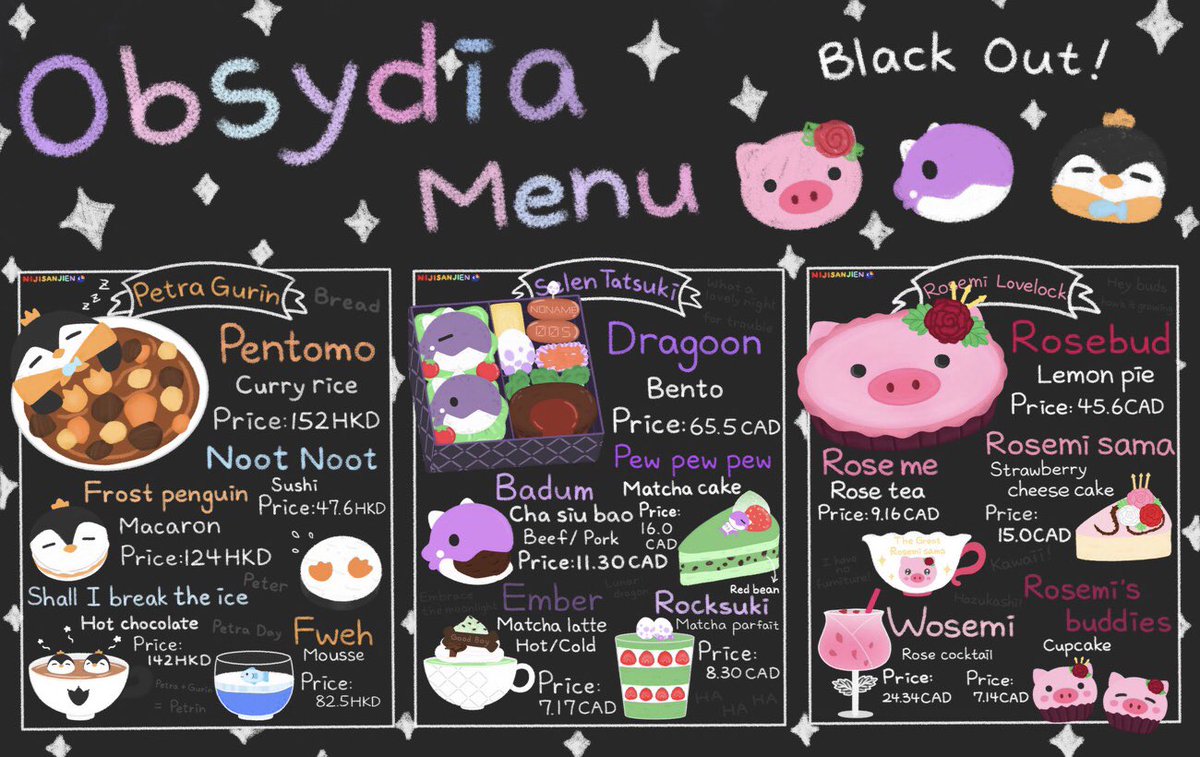 Obsydia
Menu
Black Out!
NIJISANJI EN
Petra Gurin
Bread
z z z
Pentomo
Curry rice
Price: 152HKD
Noot Noot
Sushi
Price: 47.6HKD
Frost penguin
Macaron
Price: 124HKD
Peter
Shall I break the ice
Hot chocolate
Price:
142HKD
Petra Day
Petra + Gurin
= Petrin
Fweh
Mousse
Price:
82.5HKD
NIJISANJI EN
Selen Tatsuki
What a
lovely night
for trouble
NONAME
005
Dragoon
Bento
Price: 65.5 CAD
Pew pew pew
Matcha cake
Price:
16.0
CAD
Red bean
Badum
Cha siu bao
Beef/ Pork
Price: 11.30 CAD
Embrace
the moonlight
Lunar
dragon
Ember
Matcha latte
Hot/Cold
Good Boy
Price:
7.17 CAD
Rocksuki
Matcha parfait
Price:
8.30 CAD
HA
HA HA
NIJISANJI EN
Rosemi Lovelock
Hey buds
Rosebud
Lemon pie
Price: 45.6 CAD
Rosemi sama
Strawberry
cheese cake
Price:
15.0CAD
Rose me
Rose tea
Price: 9.16 CAD
The Great
Rosemi sama
I have
no
furniture!
Kawaii!
Hazukashii
Wosemi
Rose cocktail
Price:
24.34CAD
Rosemi's
buddies
Cupcake
Price:
7.14CAD